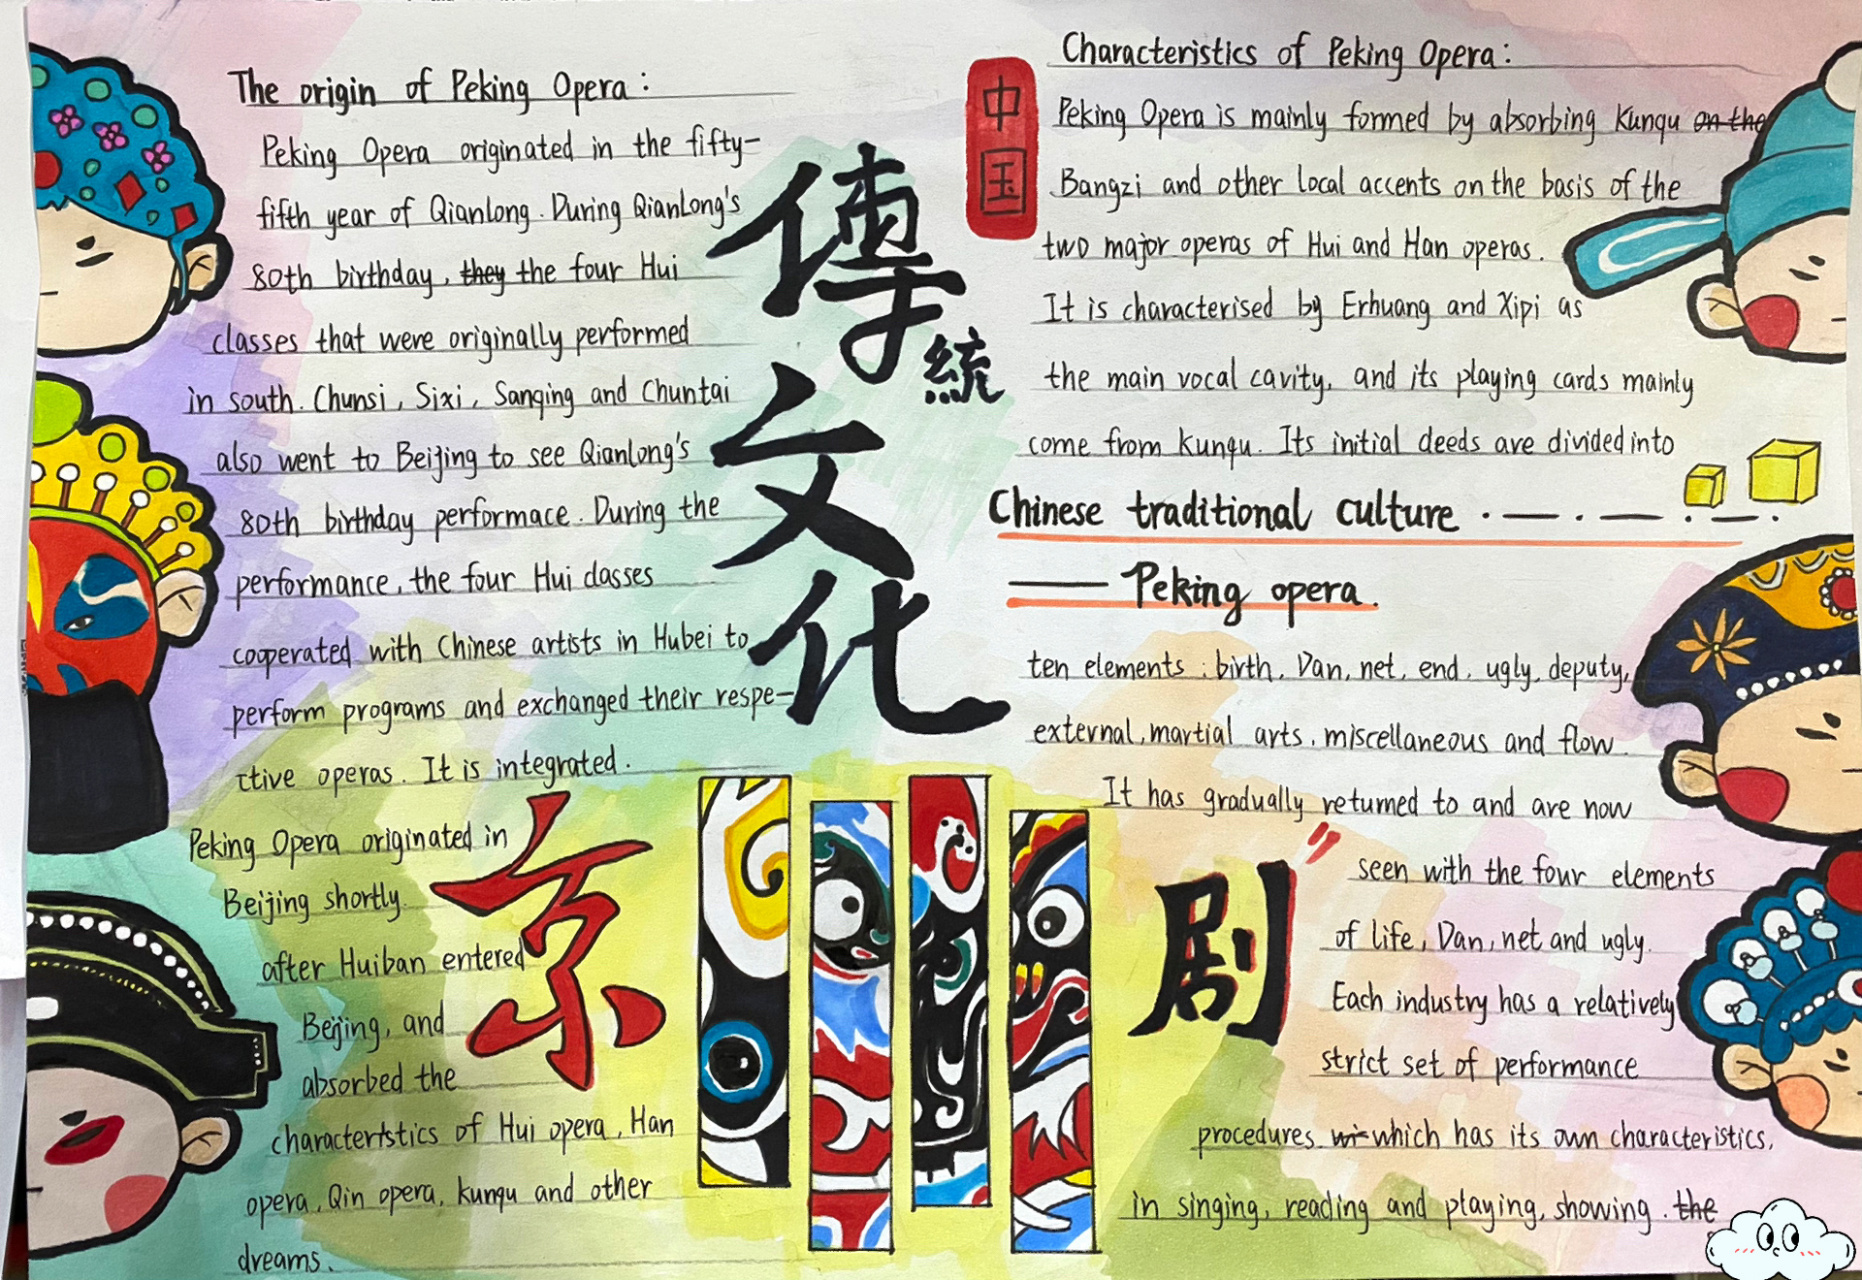 The origin of Peking Opera:
Peking Opera originated in the fifty-
fifth year of Qianlong. During QianLong's
80th birthday, they the four Hui
classes that were originally performed
in south. Chunsi, Sixi, Sanqing and Chuntai
also went to Beijing to see Qianlong's
80th birthday performace. During the
performance, the four Hui classes
cooperated with Chinese artists in Hubei to
perform programs and exchanged their respe-
ctive operas. It is integrated.
Peking Opera originated in
Beijing shortly
after Huiban entered
Beijing, and
absorbed the
charactertstics of Hui opera, Han
opera, Qin opera, kunqu and other
dreams.
傳統
文
化
中国
京
剧
Characteristics of Peking Opera:
Peking Opera is mainly formed by absorbing Kunqu on the
Bangzi and other local accents on the basis of the
two major operas of Hui and Han operas.
It is characterised by Erhuang and Xipi as
the main vocal cavity, and its playing cards mainly
come from kunqu. Its initial deeds are divided into
Chinese traditional culture
Peking opera.
ten elements: birth, Dan, net, end, ugly, deputy,
external, martial arts, miscellaneous and flow
It has gradually returned to and are now
seen with the four elements
of life, Dan, net and ugly.
Each industry has a relatively
strict set of performance
procedures wi which has its own characteristics,
in singing, reading and playing, showing. the